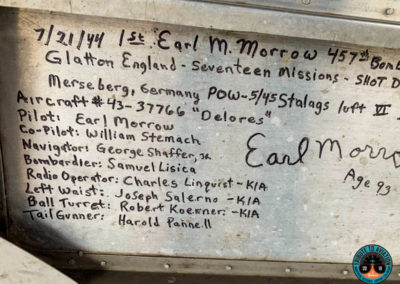 7/21/44 1st. Earl M. Morrow 457th Bomb
Glatton England - Seventeen Missions - SHOT D
Merseberg, Germany POW - 5/45 Stalags luft VI
Aircraft # 43-37766 "Delores"
Pilot: Earl Morrow
Co-Pilot: William Stemach
Navigator: George Shaffer, Jr.
Bombardier: Samuel Lisica
Radio Operator: Charles Linquist - KIA
Left Waist: Joseph Salerno - KIA
Ball Turret: Robert Koerner - KIA
Tail Gunner: Harold Pannell
Earl Morro
Age 93